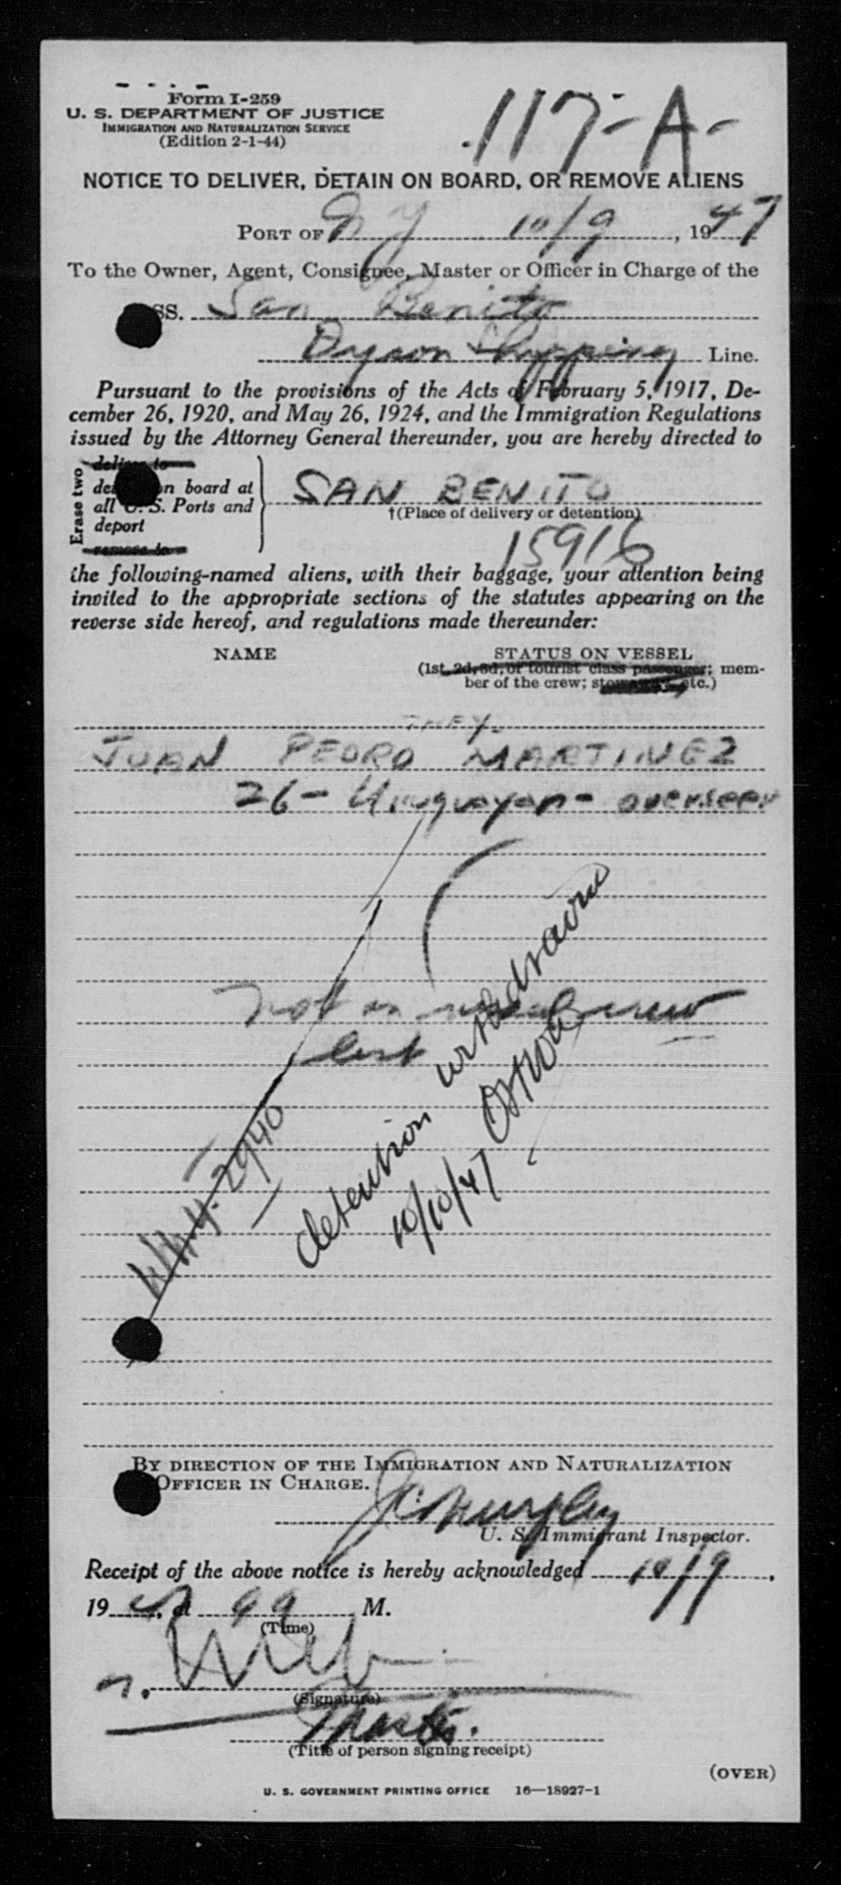 Form I-259
U. S. DEPARTMENT OF JUSTICE
IMMIGRATION AND NATURALIZATION SERVICE
(Edition 2-1-44)
117-A-
NOTICE TO DELIVER, DETAIN ON BOARD, OR REMOVE ALIENS
PORT OF N Y 10/9, 1947
To the Owner, Agent, Consignee, Master or Officer in Charge of the
SS. San Benito
Dyson Shipping Line.
Pursuant to the provisions of the Acts of February 5, 1917, De-
cember 26, 1920, and May 26, 1924, and the Immigration Regulations
issued by the Attorney General thereunder, you are hereby directed to
Erase two
deliver to
on board at
all U. S. Ports and
deport
remove to
SAN BENITO
†(Place of delivery or detention)
15916
the following-named aliens, with their baggage, your attention being
invited to the appropriate sections of the statutes appearing on the
reverse side hereof, and regulations made thereunder:
NAME STATUS ON VESSEL
(1st, 2d, 3d, or tourist class passenger; mem-
ber of the crew; stowaway, etc.)
JUAN PEDRO MARTINEZ
26 - Uruguayan - overseer
not on vessel crew
list
detention withdrawn
10/10/47
BY DIRECTION OF THE IMMIGRATION AND NATURALIZATION
OFFICER IN CHARGE.
JC Murphy
U. S. Immigrant Inspector.
Receipt of the above notice is hereby acknowledged 10/9,
1947, at M.
(Time)
(Signature)
Master.
(Title of person signing receipt)
(OVER)
U. S. GOVERNMENT PRINTING OFFICE 16—18927-1